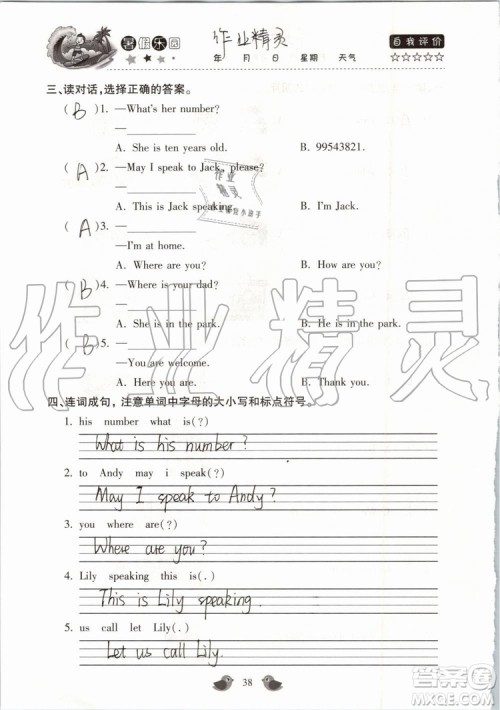 暑假乐园 作业精灵 自我评价
年 月 日 星期 天气 ☆☆☆☆☆
三、读对话,选择正确的答案。
( B )1. —What's her number?
—
A. She is ten years old. B. 99543821.
( A )2. —May I speak to Jack, please?
—
A. This is Jack speaking. B. I'm Jack.
( A )3. —
—I'm at home.
A. Where are you? B. How are you?
( B )4. —Where is your dad?
—
A. She is in the park. B. He is in the park.
( B )5. —
—You are welcome.
A. Here you are. B. Thank you.
四、连词成句，注意单词中字母的大小写和标点符号。
1. his number what is(?)
What is his number?
2. to Andy may i speak(?)
May I speak to Andy?
3. you where are(?)
Where are you?
4. Lily speaking this is(.)
This is Lily speaking.
5. us call let Lily(.)
Let us call Lily.
38
作业精灵
答案圈
MXQE.COM